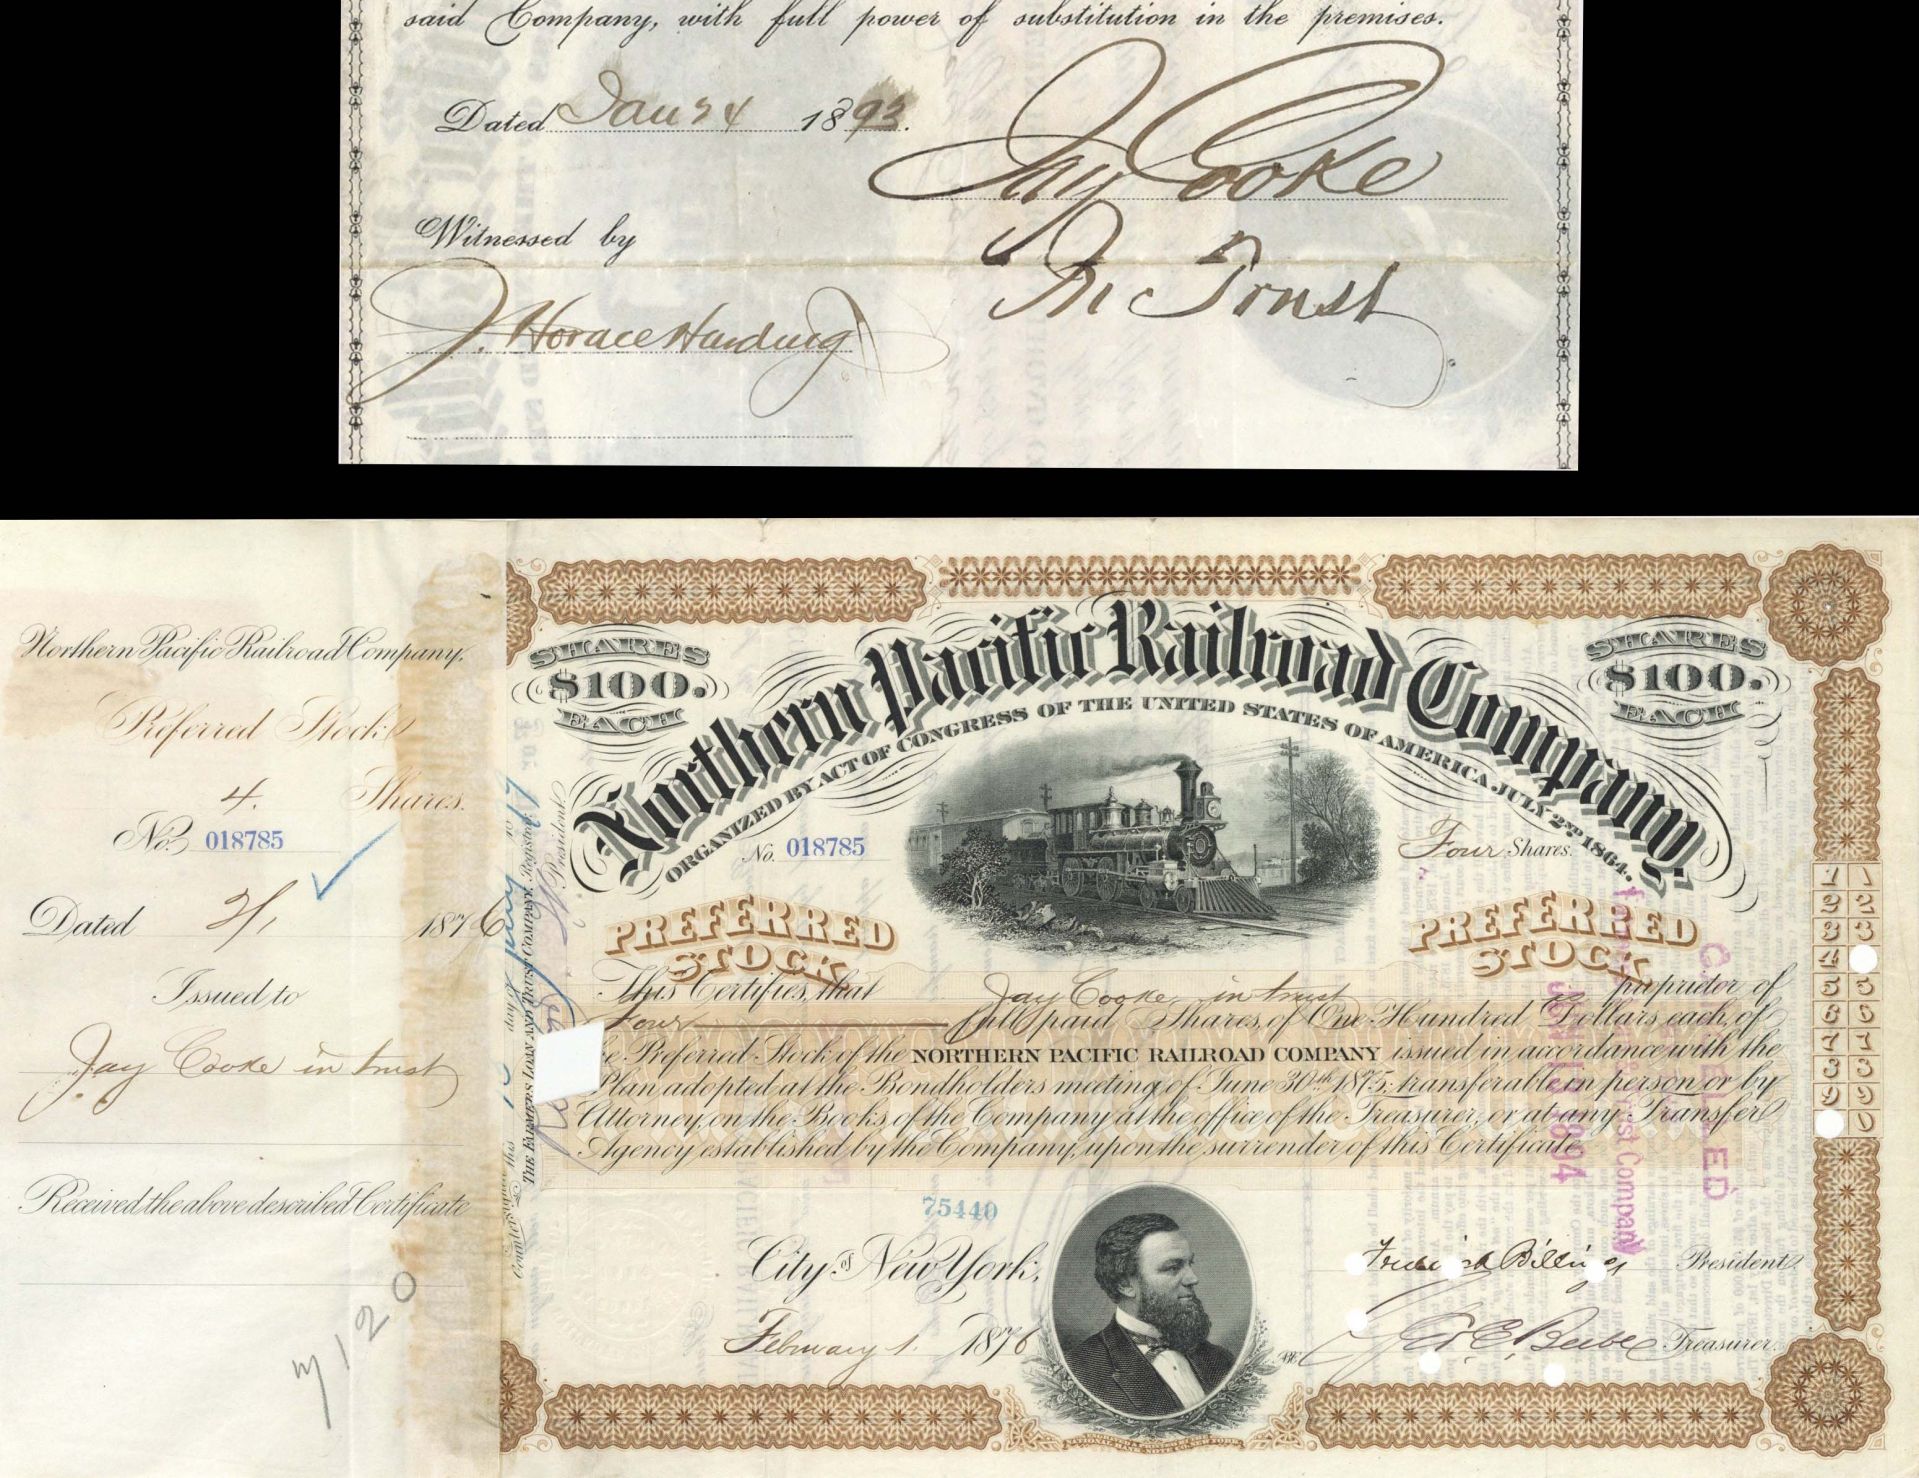 said Company, with full power of substitution in the premises.
Dated Jan 24 1893.
Jay Cooke
In Trust
Witnessed by
J. Horace Harding
Northern Pacific Railroad Company.
Preferred Stock
4. Shares.
No. 018785
Dated 2/1 1876
Issued to
Jay Cooke in trust
Received the above described Certificate
120
Countersigned this day of
THE FARMERS LOAN AND TRUST COMPANY, Registrar
President
SHARES
$100.
EACH
Northern Pacific Railroad Company.
ORGANIZED BY ACT OF CONGRESS OF THE UNITED STATES OF AMERICA, JULY 2ND 1864.
SHARES
$100.
EACH
No. 018785
Four Shares.
PREFERRED
STOCK
PREFERRED
STOCK
This Certifies, that Jay Cooke, in trust proprietor of
Four full paid Shares, of One Hundred Dollars each, of
Preferred Stock of the NORTHERN PACIFIC RAILROAD COMPANY issued in accordance with the
Plan adopted at the Bondholders meeting of June 30th 1875; transferable in person or by
Attorney, on the Books of the Company at the office of the Treasurer, or at any Transfer
Agency established by the Company, upon the surrender of this Certificate
75440
City of New York,
February 1. 1876
Frederick Billings President
Geo E. Beebe Treasurer.
1 1
2 2
3 3
4
5 5
6 6
7 7
8 8
9 9
0
CANCELLED
Trust Company
1894